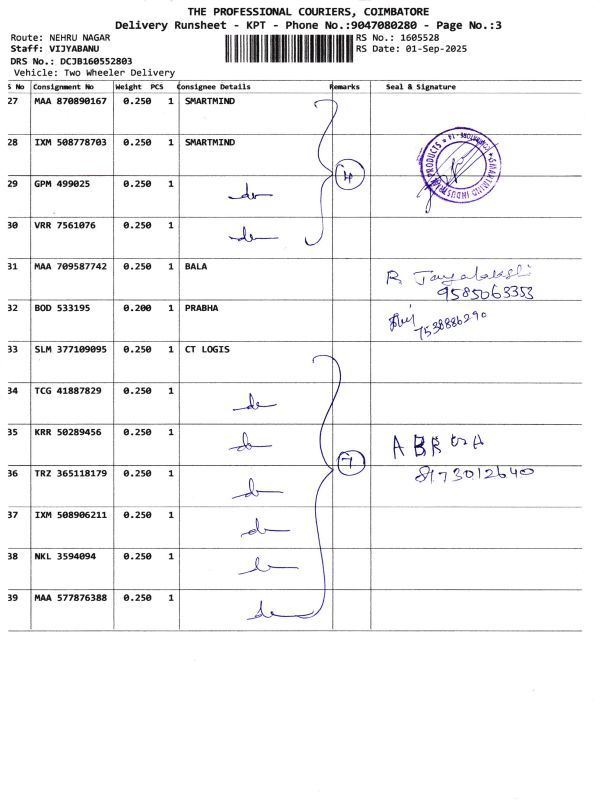 THE PROFESSIONAL COURIERS, COIMBATORE
Delivery Runsheet - KPT - Phone No.:9047080280 - Page No.:3
Route: NEHRU NAGAR RS No.: 1605528
Staff: VIJYABANU RS Date: 01-Sep-2025
DRS No.: DCJB160552803
Vehicle: Two Wheeler Delivery
S No Consignment No Weight PCS Consignee Details Remarks Seal & Signature
27 MAA 870890167 0.250 1 SMARTMIND
28 IXM 508778703 0.250 1 SMARTMIND
4
29 GPM 499025 0.250 1 do
30 VRR 7561076 0.250 1 do
31 MAA 709587742 0.250 1 BALA
9585063353
32 BOD 533195 0.200 1 PRABHA
7538886290
33 SLM 377109095 0.250 1 CT LOGIS
34 TCG 41887829 0.250 1 do
35 KRR 50289456 0.250 1 do
7
8173012640
36 TRZ 365118179 0.250 1 do
37 IXM 508906211 0.250 1 do
38 NKL 3594094 0.250 1 do
39 MAA 577876388 0.250 1 do